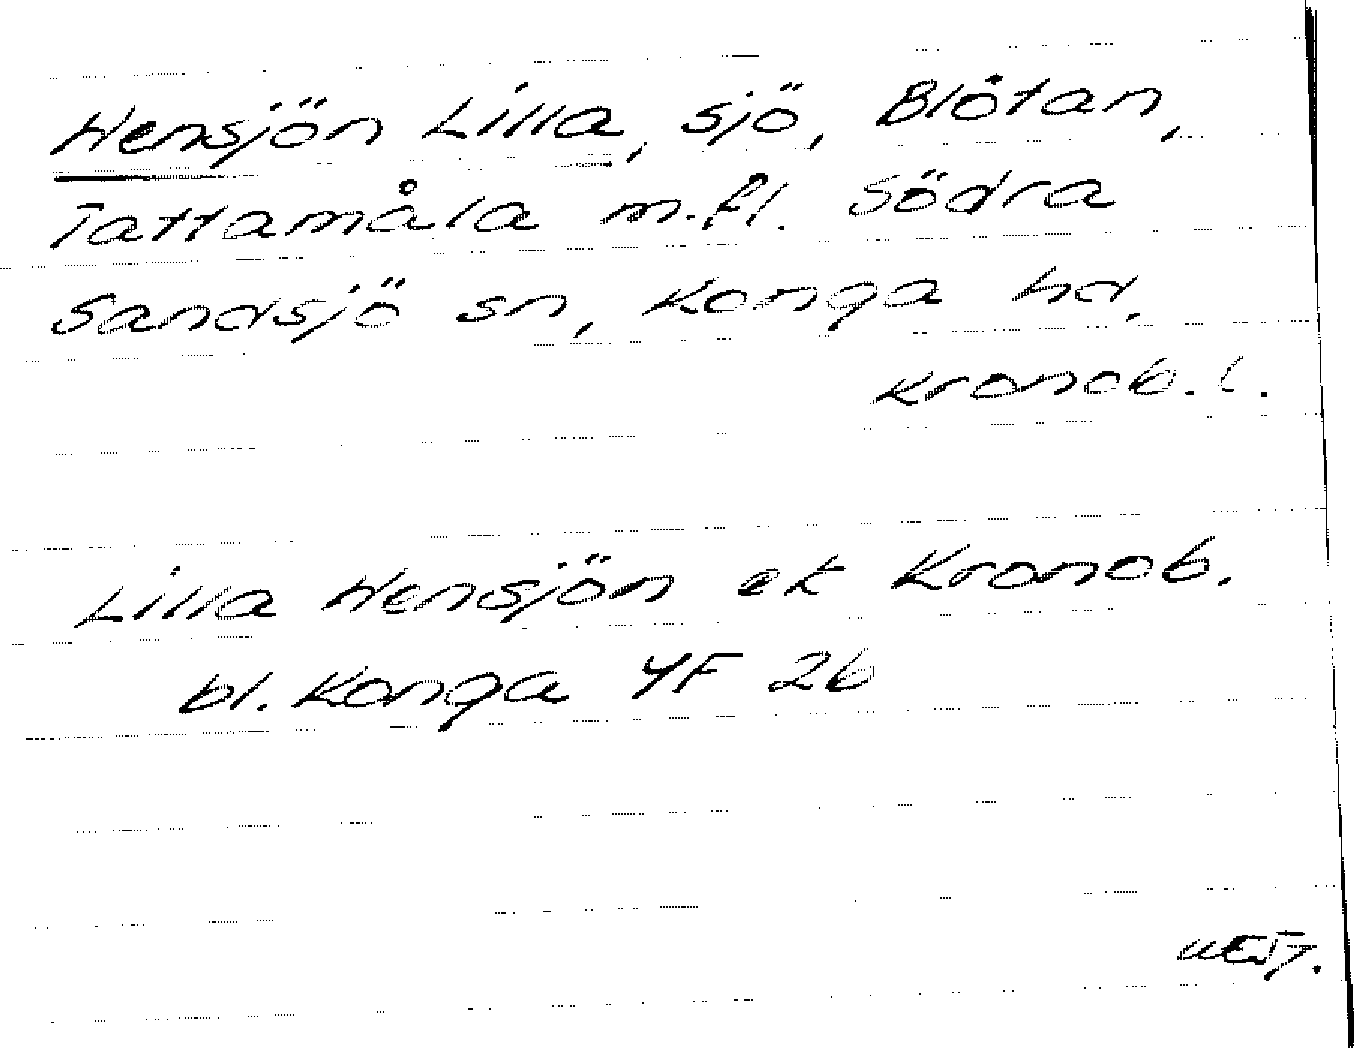 Hensjön Lilla, sjö, Blötan,
Tattamåla m.fl. Södra
Sandsjö sn, Konga hd,
Kronob. l.
Lilla Hensjön ek Kronob.
bl. Konga YF 26